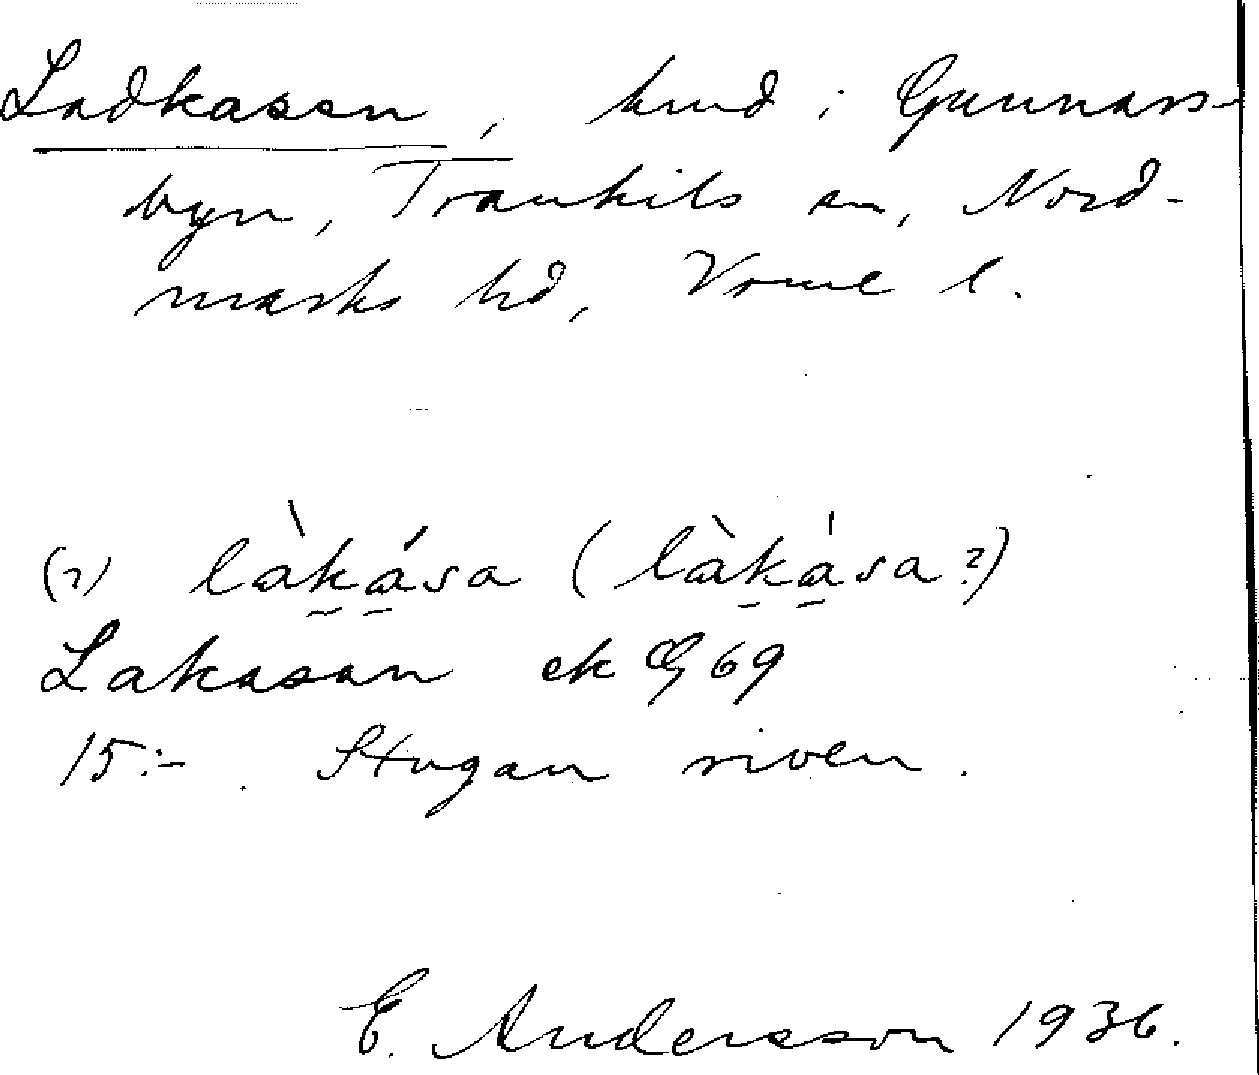 Ladkasen, hmd i Gunnars-
byn, Trankils sn, Nord-
marks hd, Vrml l.
(?) làkása (làkása?)
Lakasan ek G 69
15:- . Stugan riven.
E. Andersson 1936.